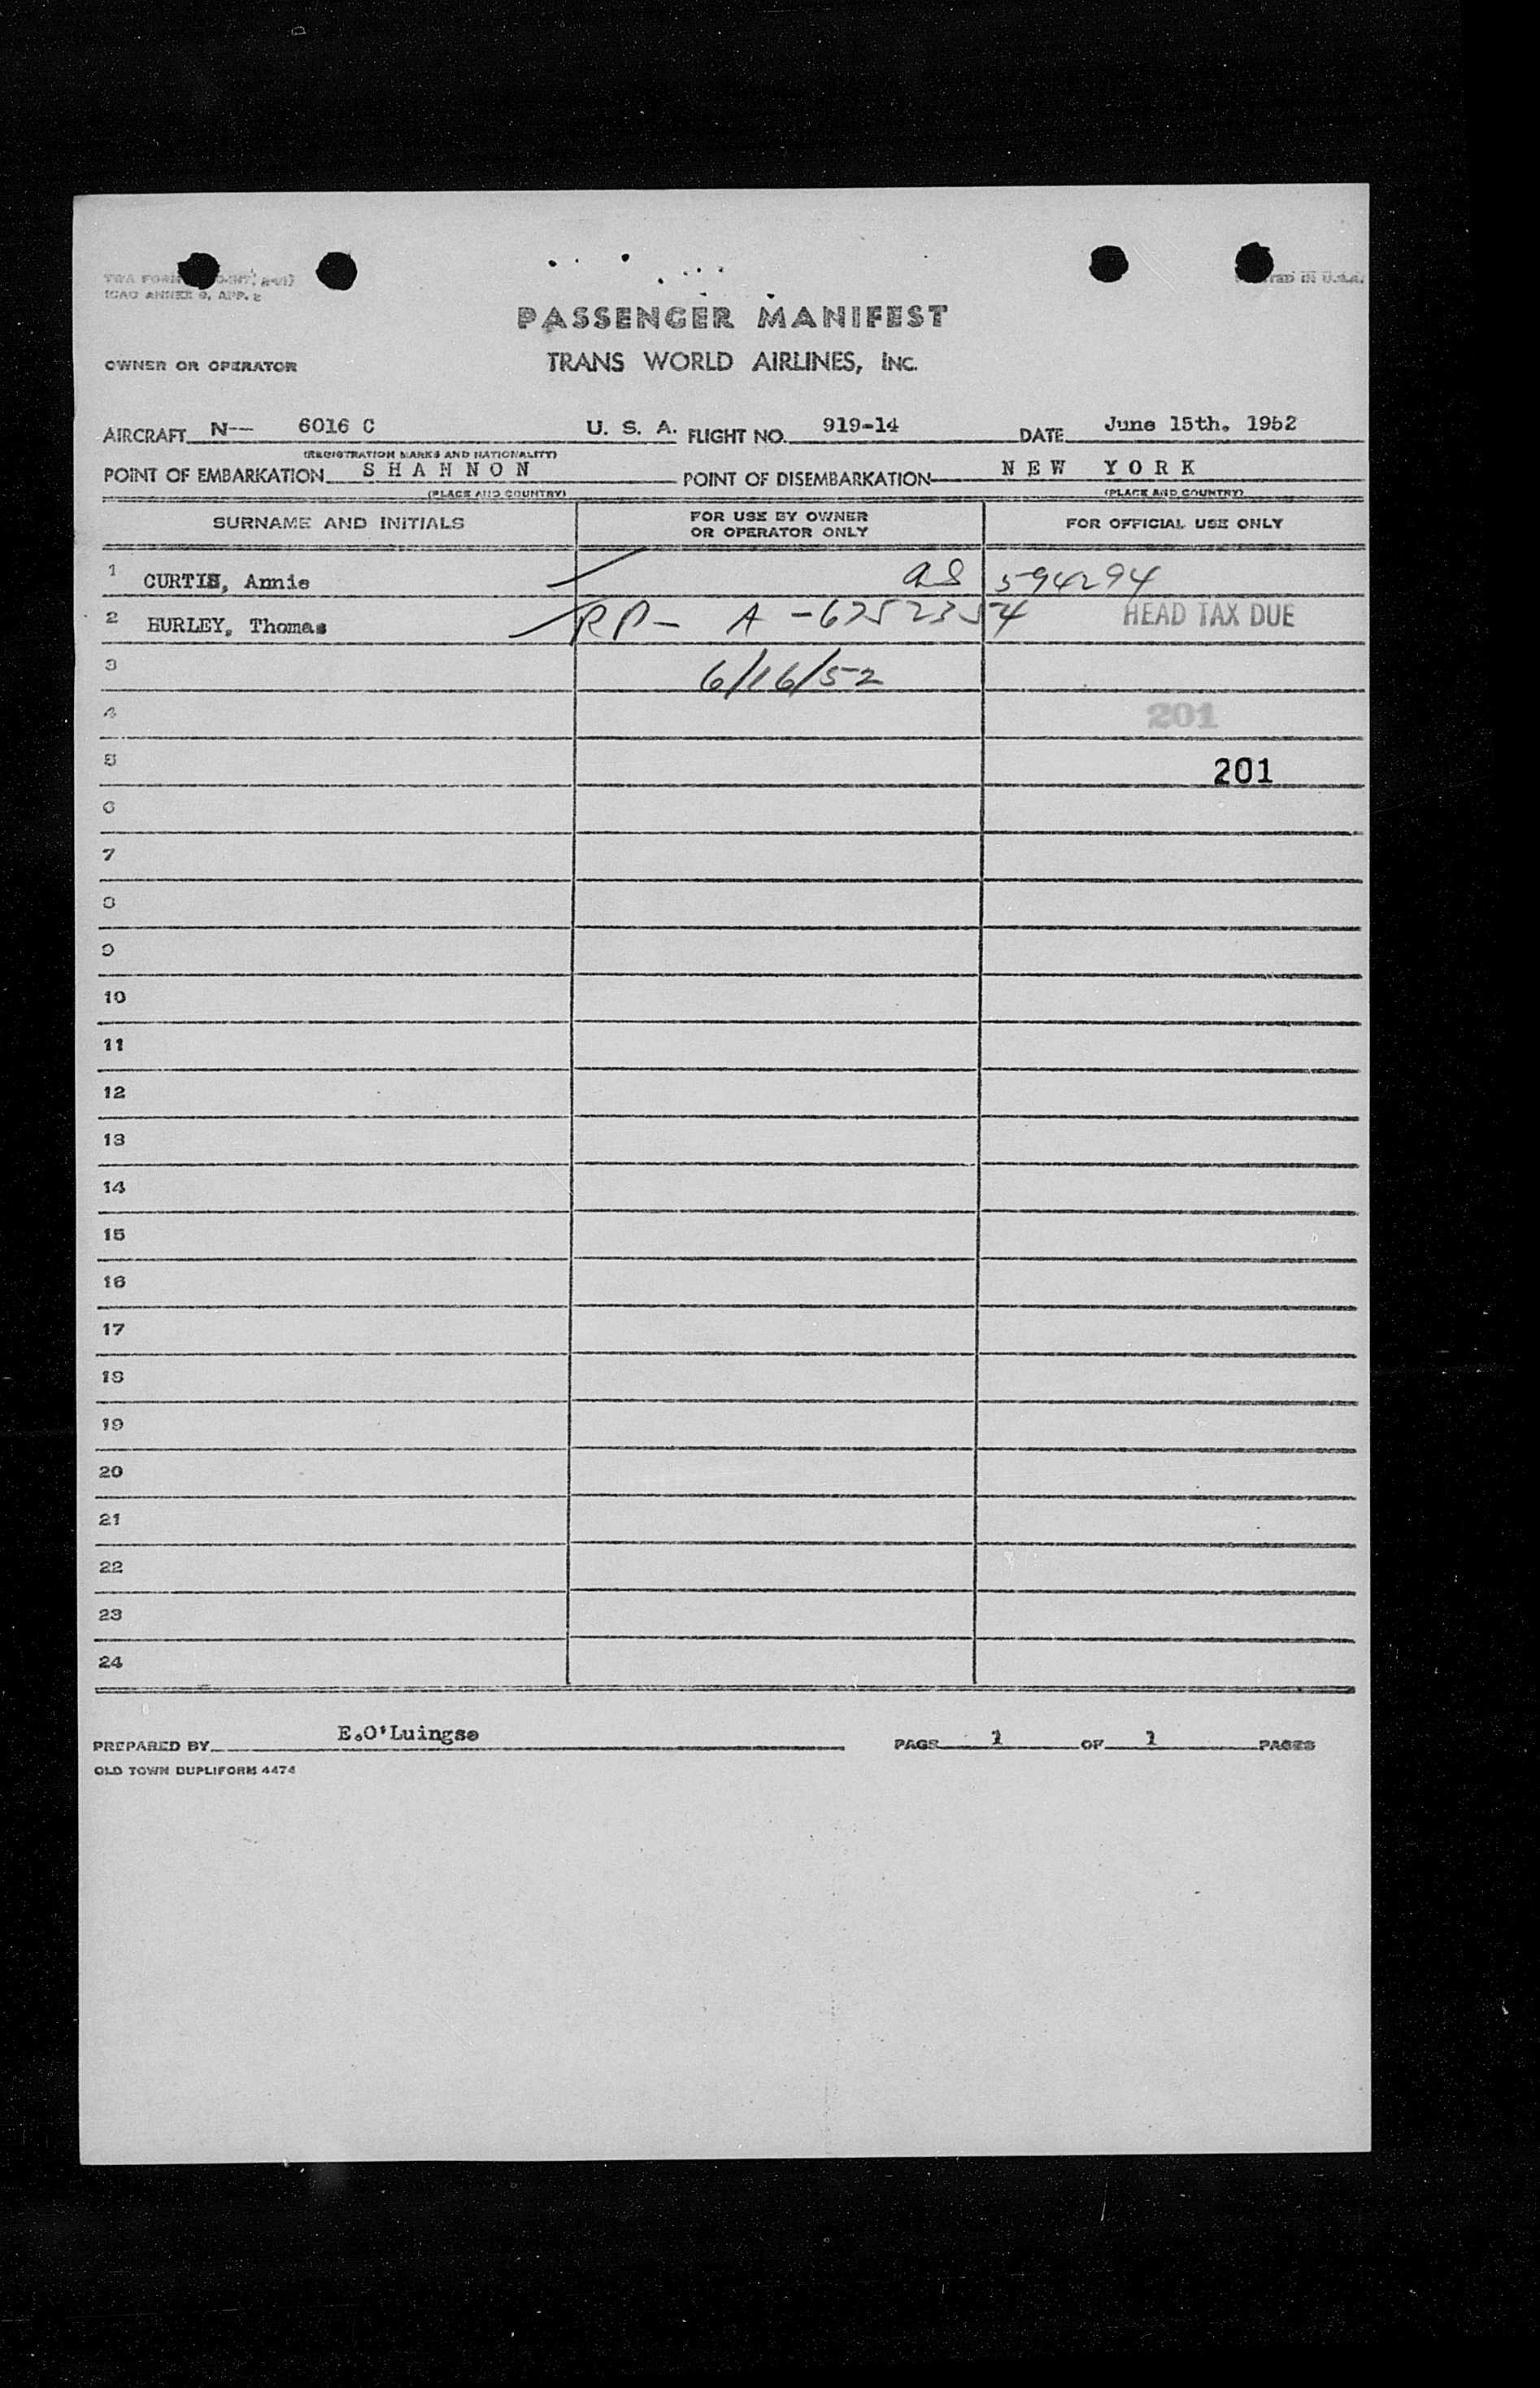 ICAO ANNEX 9, APP. 2
PASSENGER MANIFEST
OWNER OR OPERATOR TRANS WORLD AIRLINES, INC.
AIRCRAFT N-- 6016 C U. S. A. FLIGHT NO. 919-14 DATE June 15th. 1952
(REGISTRATION MARKS AND NATIONALITY)
POINT OF EMBARKATION S H A N N O N POINT OF DISEMBARKATION N E W Y O R K
(PLACE AND COUNTRY) (PLACE AND COUNTRY)
SURNAME AND INITIALS FOR USE BY OWNER OR OPERATOR ONLY FOR OFFICIAL USE ONLY
1 CURTIS, Annie 594294
2 HURLEY, Thomas RP- A-6252354 HEAD TAX DUE
3 6/16/52
4 201
5 201
6
7
8
9
10
11
12
13
14
15
16
17
18
19
20
21
22
23
24
PREPARED BY E.O'Luingse PAGE 1 OF 1 PAGES
OLD TOWN DUPLIFORM 4474